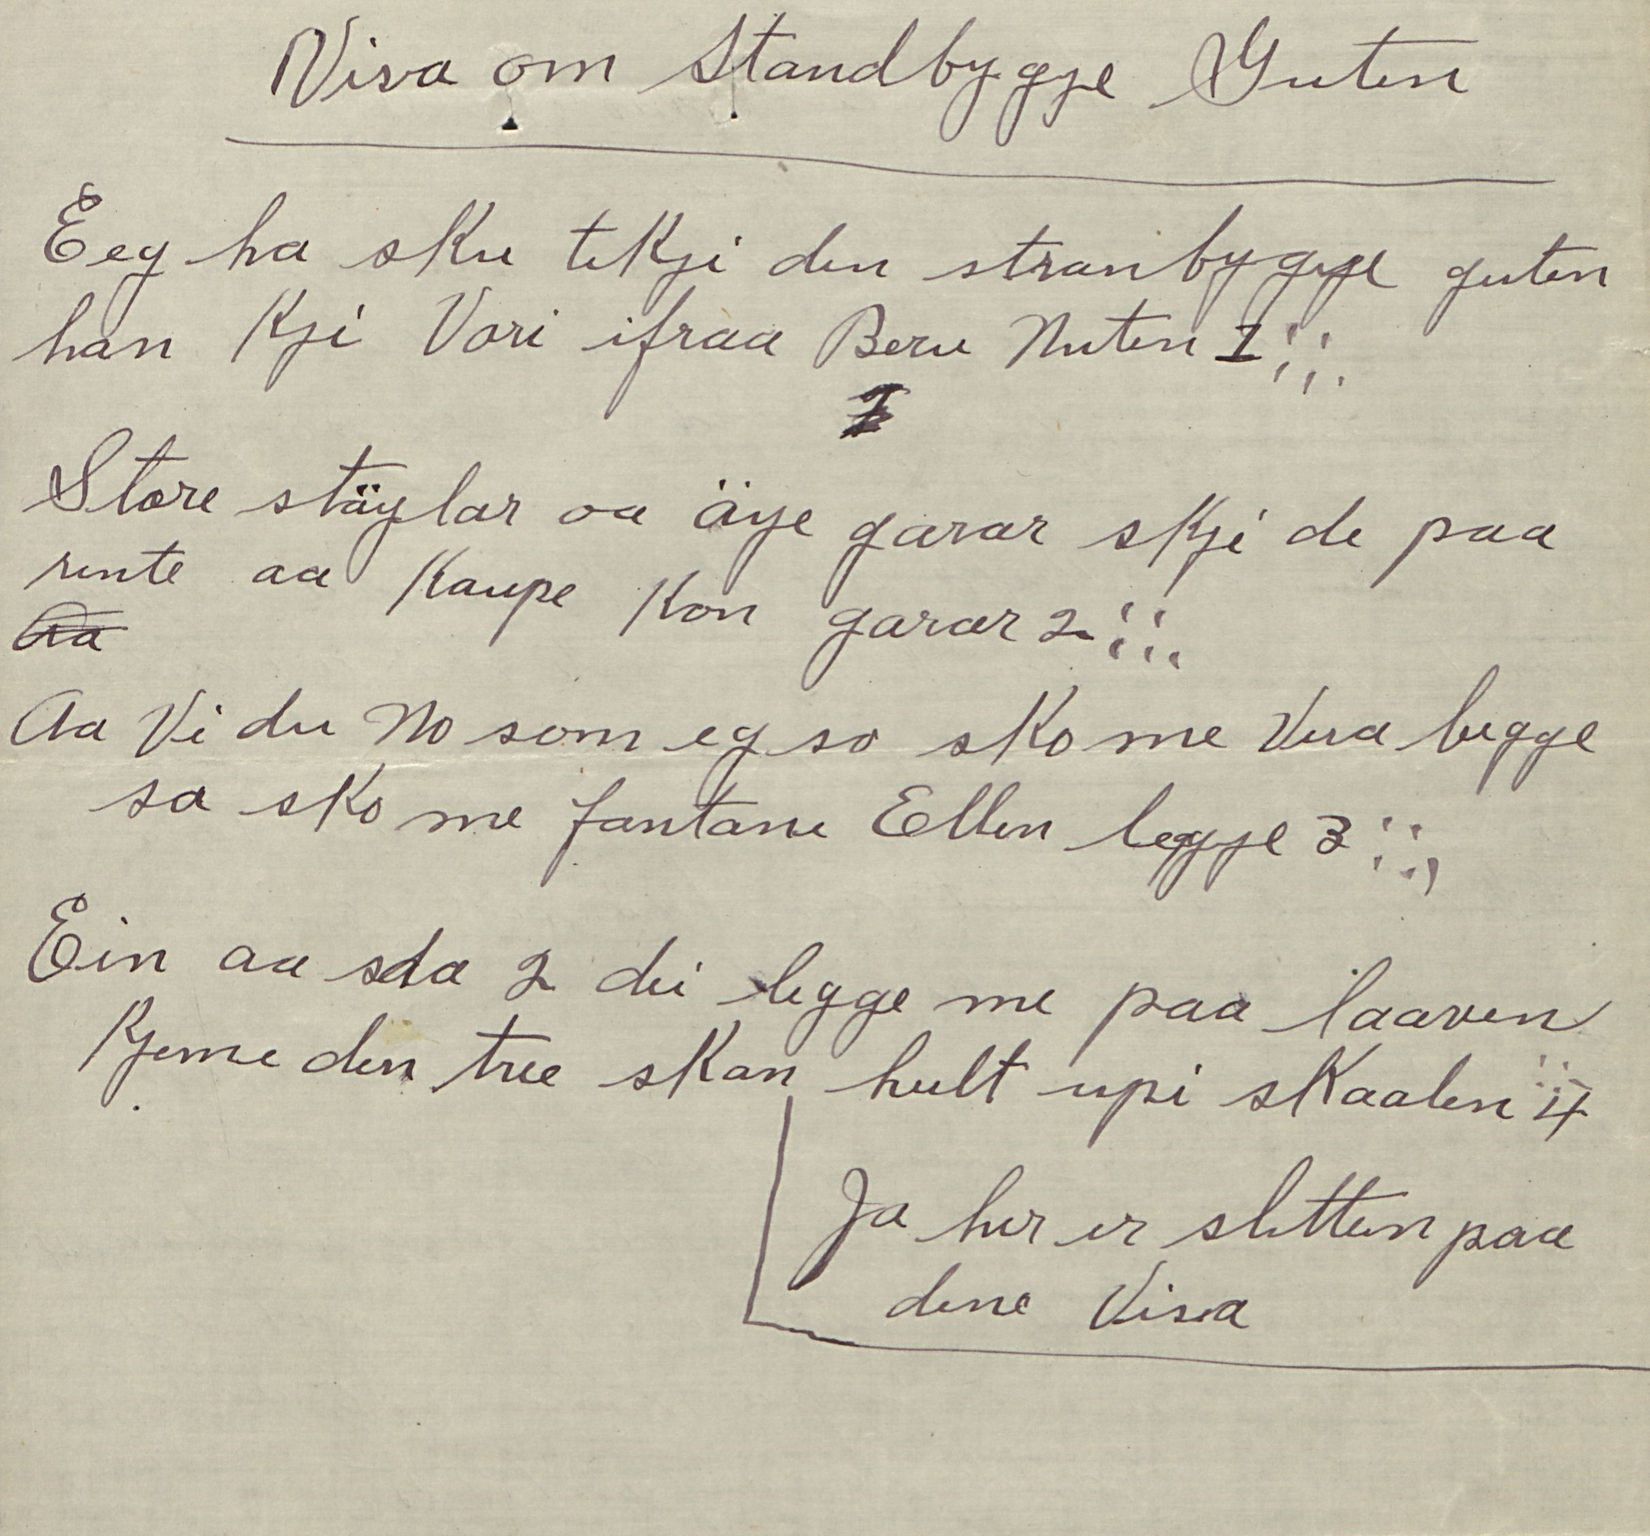 Visa om Standbygge Guten
Eeg ha sku tekji den stranbygge guten
han kji Vori ifraa Beru Nuten 1
Store stäylar oa äye garar skji de paa
rente aa Kaupe Kon garar 2
Aa
Aa Vi du No som eg so sko me Vera begge
sa sko me fantane Ellen legge 3
Ein aa sda 2 dei legge me paa laaven
Kjeme den tree skan hult upi skaalen 4
Ja her er sletten paa
dene Visa